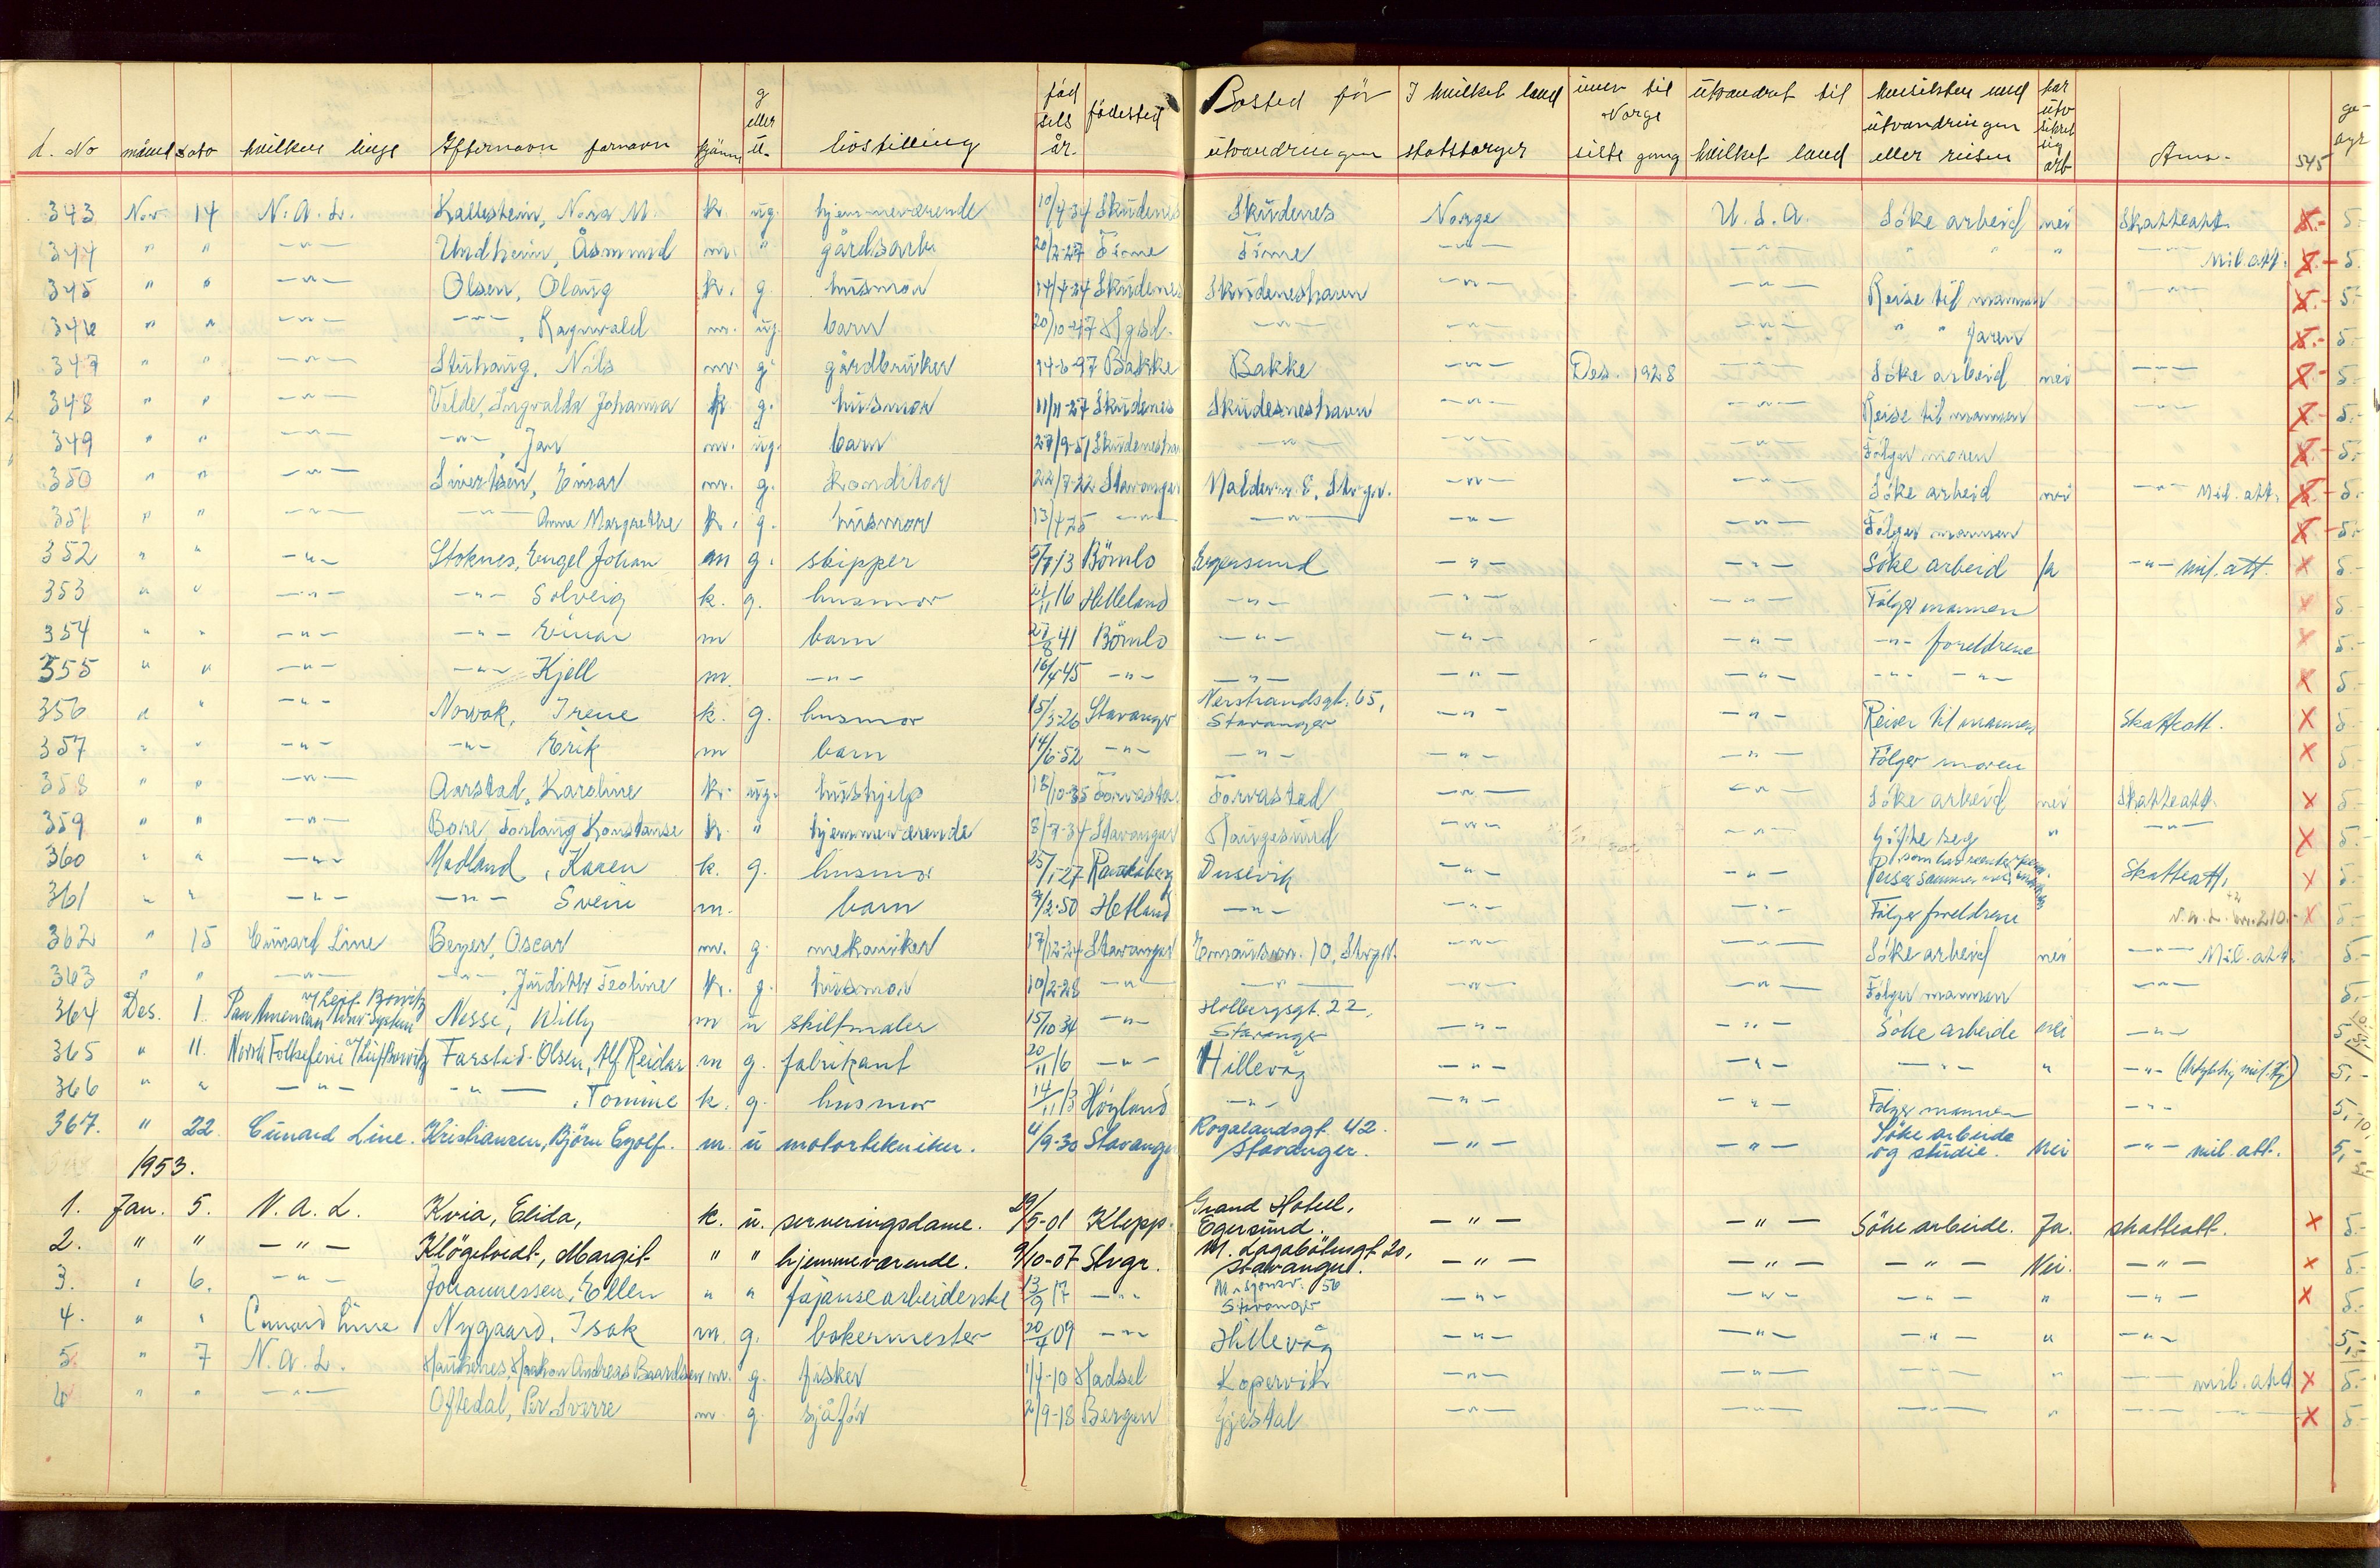 L. No måned dato hvilken linje Efternavn fornavn kjönn g eller u. livstilling fødsels år. födested Bosted för utvandringen I hvilket land statsborger innv til Norge siste gang utvandret til hvilket land hensikten med utvandringen eller reisen har utv sikret sig arb Anm. 545 ge- byr
343 Nov 14 N.A.L. Kallestein, Nora M. k. ug. hjemmeværende 10/7-34 Skudenes Skudenes Norge U.S.A. Söke arbeid nei Skatteatt. X 5.-
344 " " -"- Undheim, Åsmund m. " gårdsarb. 20/2-27 Time Time -"- -"- " " " -"- Mil.att. X 5.-
345 " " -"- Olsen, Olaug k. g. husmor 14/4-24 Skudenes Skudeneshavn -"- -"- Reise til mannen -"- X 5.-
346 " " -"- -"-, Ragnvald m. ug. barn 20/10-47 Hgsd. -"- -"- -"- " " faren X 5.-
347 " " -"- Stuhaug, Nils m. g. gårdbruker 14-6-97 Bakke Bakke -"- Des. 1928 -"- Söke arbeid nei -"- X 5.-
348 " " -"- Velde, Ingvalda Johanna k. g. husmor 11/11-27 Skudenes Skudeneshavn -"- -"- Reise til mannen -"- X 5.-
349 " " -"- -"-, Jan m. ug. barn 27/9-51 Skudenesha -"- -"- -"- Fölger moren X 5.-
350 " " -"- Sivertsen, Einar m. g. konditor 22/7-22 Stavanger Valdemr. 8, Stvgr. -"- -"- Söke arbeid nei -"- Mil.att. X 5.-
351 " " -"- -"- Anna Margrethe k. g. husmor 13/4-25 -"- -"- -"- -"- Fölger mannen X 5.-
352 " " -"- Stoknes, Engel Johan m g. skipper 5/7 13 Bömlo Egersund -"- -"- Söke arbeid Ja -"- mil.att. X 5.-
353 " " -"- -"- Solveig k. g. husmor 21/11 16 Helleland -"- -"- -"- Fölger mannen X 5.-
354 " " -"- -"- Einar m barn 27/8 41 Bömlo -"- -"- -"- -"- foreldrene X 5.-
355 " " -"- -"- Kjell m. -"- 16/4-45 -"- -"- -"- -"- -"- -"- X 5.-
356 " " -"- Nowak, Irene k. g. husmor 15/3-26 Stavanger Nerstrandsgt. 65, Stavanger -"- -"- Reiser til mannen Skatteatt. X 5.-
357 " " -"- -"- Erik m barn 14/6-52 -"- -"- -"- -"- Fölger moren X 5.-
358 " " -"- Aarstad, Karoline k. ug. hushjelp 18/10-35 Torvasta Torvastad -"- -"- Söke arbeid nei Skatteatt. X 5.-
359 " " -"- Bore Torlaug Konstanse k. " hjemmeværende 8/7-34 Stavanger Haugesund -"- -"- Gifte seg " -"- X 5.-
360 " " -"- Madland, Karen k. g. husmor 25/1-27 Dusevik -"- -"- Reiser sammen med Skatteatt. X 5.-
361 " " -"- -"- Svein m. barn 9/2-50 Hetland -"- -"- -"- Fölger foreldrene X 5.-
362 " 15 Cunard Line Beyer, Oscar m. g. mekaniker 17/12-24 Stavanger 10, Stvgr. -"- -"- Söke arbeid nei -"- Mil.att. 5.-
363 " " -"- -"-, Judith Teoline k. g. husmor 10/2-28 -"- -"- -"- -"- Fölger mannen 5.-
364 Des. 1. Pan American World System Nesse, Willy m u skiltmaler 15/10 34 -"- Holbergsgt. 22, Stavanger -"- -"- Söke arbeide nei -"- 5,-
365 " 11. Norsk Folkeferie Farstad-Olsen, Alf Reidar m g. fabrikant 20/11 16 -"- Hillevåg -"- -"- -"- " -"- 5,-
366 " " -"- -"-, Tomine k. g. husmor 14/11 13 Höyland -"- -"- -"- Fölger mannen -"- 5,-
367. " 22 Cunard Line. Kristiansen, Björn Egolf. m. u motortekniker. 4/9-30 Stavanger Rogalandsgt. 42. Stavanger. -"- -"- Söke arbeide og studie. Nei -"- mil.att. 5,-
1953.
1. Jan. 5. N.A.L. Kvia, Elida, k. u. serveringsdame. 29/5-01 Klepp. Grand Hotell, Egersund. -"- -"- Söke arbeide. Ja. skatteatt. X 5.-
2. " " -"- Klögetvedt, Margit " " hjemmeværende. 9/10-07 Stvgr. M. Lagabötersgt. 20, Stavanger. -"- -"- -"- Nei. -"- X 5.-
3. " 6. -"- Johannessen, Ellen " " fajansearbeiderske 13/9 17 -"- Misjonsv. 56 Stavanger -"- -"- -"- " -"- X 5.-
4. " " Cunard Line Nygaard, Isak m. g. bakermester 20/4 09 -"- Hillevåg -"- -"- -"- " -"- 5,-
5. " 7 N.A.L. Haukenes, Haakon Andreas Baardsen m. g. fisker 1/4-10 Hadsel Kopervik -"- -"- -"- " -"- mil.att X 5.-
6 " " -"- Oftedal, Per Sverre m. g. sjåför 2/9-18 Bergen Gjestal -"- -"- -"- " -"- X 5.-